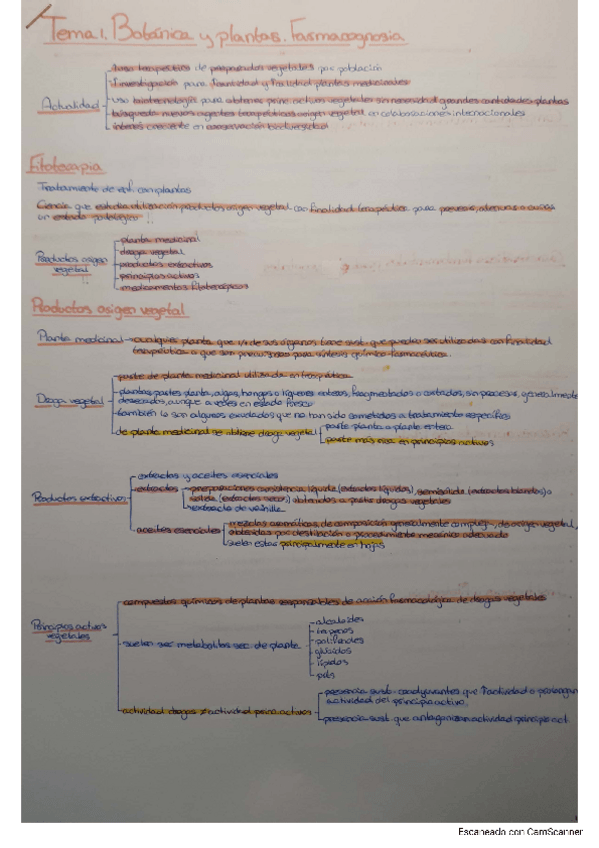 Tema 1. Botánica y plantas. Farmacognosia
Actualidad
↑uso terapéutico de preparados vegetales por población
↑investigación para ↑cantidad y ↑calidad plantas medicinales
uso biotecnología para obtener princ. activos vegetales sin necesidad grandes cantidades plantas
búsqueda nuevos agentes terapéuticos origen vegetal en colaboraciones internacionales
interés creciente en conservación biod. vegetal
Fitoterapia
Tratamiento de enf. con plantas
Ciencia que estudia utilización productos origen vegetal con finalidad terapéutica para prevenir, atenuar o curar
un estado patológico
Productos origen
vegetal
planta medicinal
droga vegetal
productos extractivos
principios activos
medicamentos fitoterápicos
Productos origen vegetal
Planta medicinal → cualquier planta que 1/+ de sus órganos tiene sust. que pueden ser utilizadas con finalidad
terapéutica o que son precursores para síntesis químico-farmacéutica.
Droga vegetal
parte de planta medicinal utilizada en terapéutica
plantas, partes planta, algas, hongos o líquenes enteros, fragmentados o cortados, sin procesar, generalmente
desecados, aunque a veces en estado fresco
también lo son algunos exudados que no han sido sometidos a tratamiento específico
de planta medicinal se obtiene droga vegetal
parte planta o planta entera
parte más rica en principios activos
Productos extractivos
extractos y aceites esenciales
extractos
preparaciones consistencia líquida (extractos líquidos), semisólida (extractos blandos) o
sólida (extractos secos) obtenidos a partir drogas vegetales
extracto de vainilla
aceites esenciales
mezclas aromáticas, de composición generalmente compleja, de origen vegetal,
obtenidas por destilación o procedimiento mecánico adecuado
suelen estar principalmente en hojas
Principios activos
vegetales
compuestos químicos de plantas responsables de acción farmacológica de drogas vegetales
suelen ser metabolitos sec. de planta
alcaloides
polifenoles
glúcidos
lípidos
actividad drogas ≠ actividad princ. activos
presencia sust. coadyuvantes que ↑actividad o prolongan
actividad del principio activo.
presencia sust. que antagonizan actividad principio act.
Escaneado con CamScanner